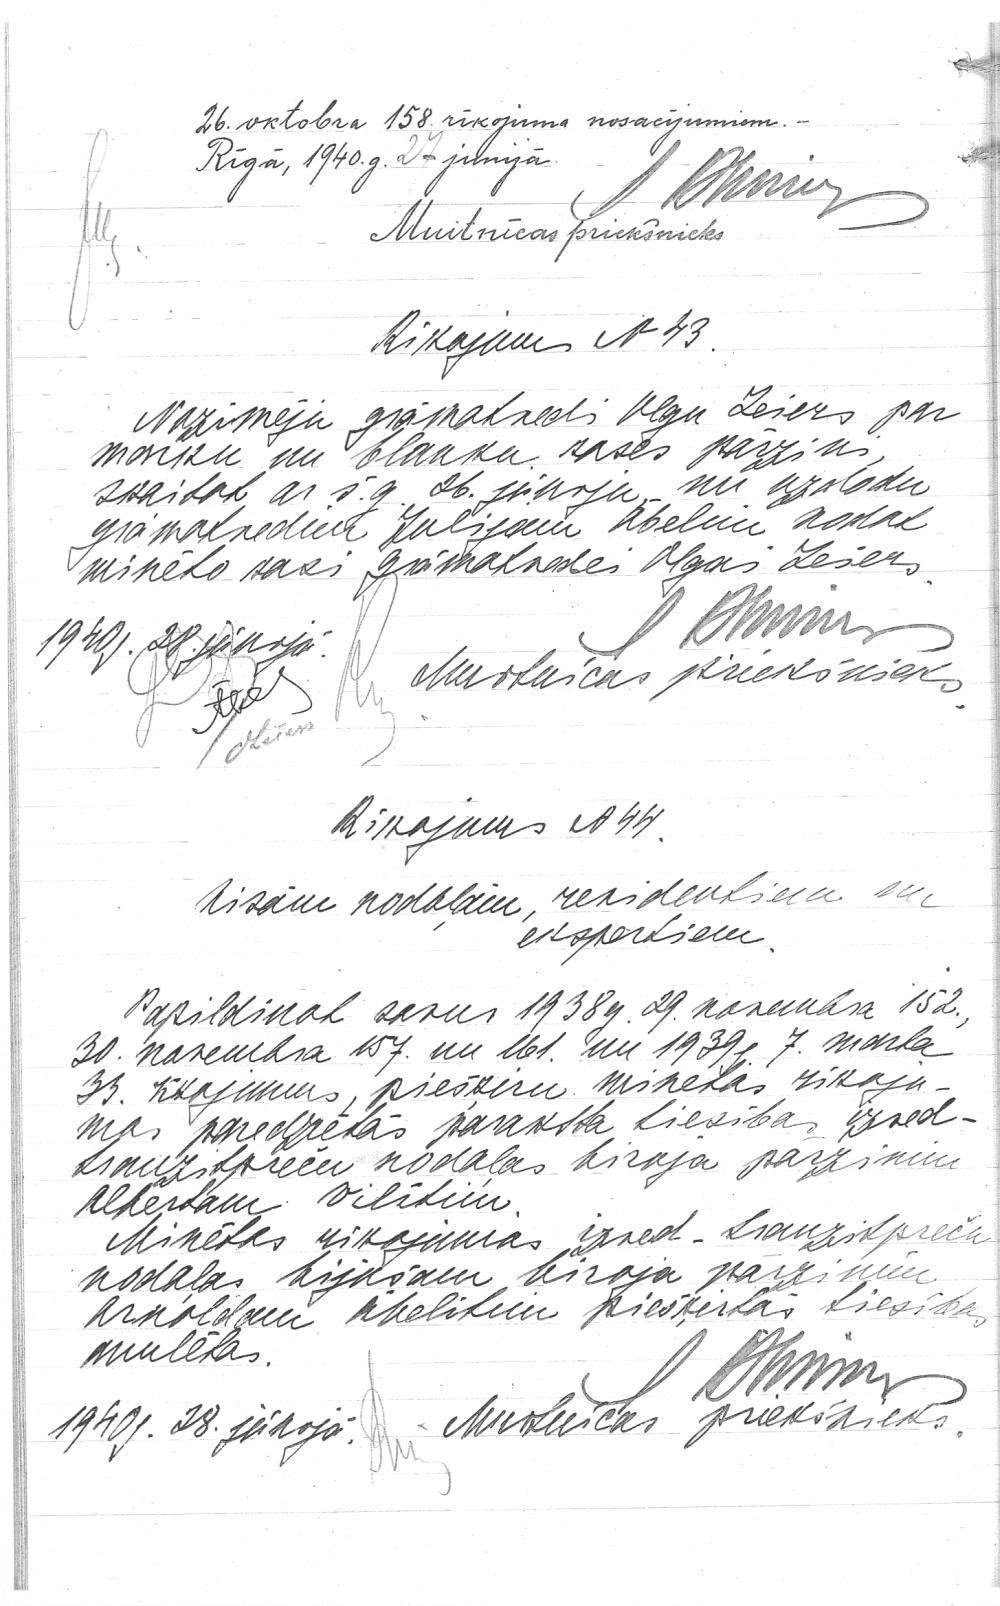 26. oktobra 158. rīkojuma nosacījumiem. –
Rīgā, 1940.g. 27 jūnijā.
Muitnīcas priekšnieks
Rīkojums № 43.
Nozīmēju grāmatvedi Olgu Leiers par
marku un blanku kases pārzini,
skaitot ar š.g. 26. jūniju, un uzdodu
grāmatvedim Julijam Ābelim nodot
minēto kasi grāmatvedei Olgai Leiers.
1940g. 28. jūnijā.
Muitnīcas priekšnieks.
Leiers
Rīkojums № 44.
Visām nodaļām, rezidentiem un
ekspertiem.
Papildinot savus 1938g. 29. novembra 152.,
30. novembra 157. un 161. un 1939g. 7. marta
33. rīkojumus, piešķiru minētās rīkoju-
mos paredzētās paraksta tiesības izved-
tranzītpreču nodaļas biroja pārzinim
Albertam Vilītim.
Minētos rīkojumos izved-tranzītpreču
nodaļas bijušam biroja pārzinim
Arnoldam Ābelītim piešķirtās tiesības
anulētas.
1940g. 28. jūnijā.
Muitnīcas priekšnieks.